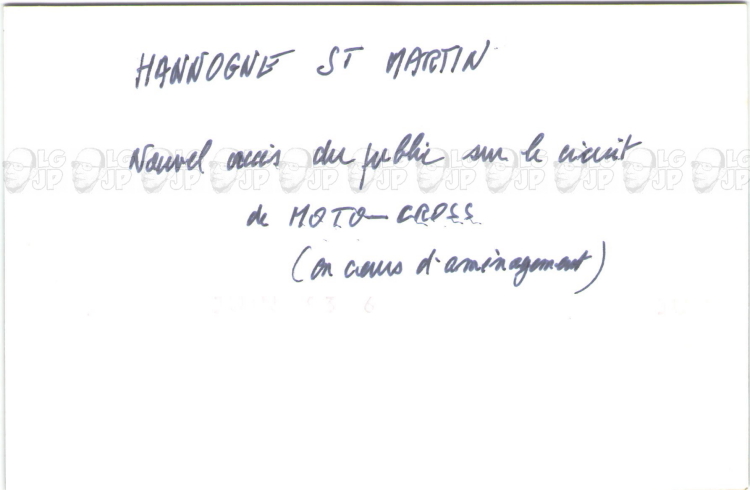 HANNOGNE ST MARTIN
Nouvel accès du public sur le circuit
de MOTO-CROSS
(en cours d'aménagement)
LG JP LG JP LG JP LG JP LG JP LG JP LG JP LG JP LG JP LG JP LG JP